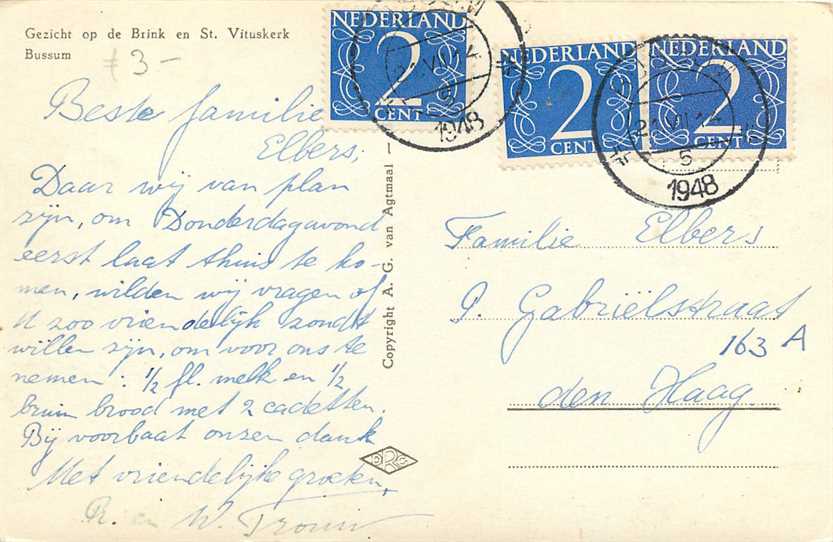 Gezicht op de Brink en St. Vituskerk
Bussum
3-
Beste familie
Elbers,
Daar wij van plan
zijn, om Donderdagavond
eerst laat thuis te ko-
men, wilden wij vragen of
U zoo vriendelijk zondt
willen zijn, om voor ons te
nemen: 1/2 fl. melk en 1/2
bruin brood met 2 cadetten.
Bij voorbaat onzen dank
Met vriendelijke groeten,
W.
Copyright A. G. van Agtmaal -
NEDERLAND
2
CENT
NEDERLAND
2
CENT
NEDERLAND
2
CENT
1948
5
1948
Familie Elbers
P. Gabriëlstraat
163 A
den Haag